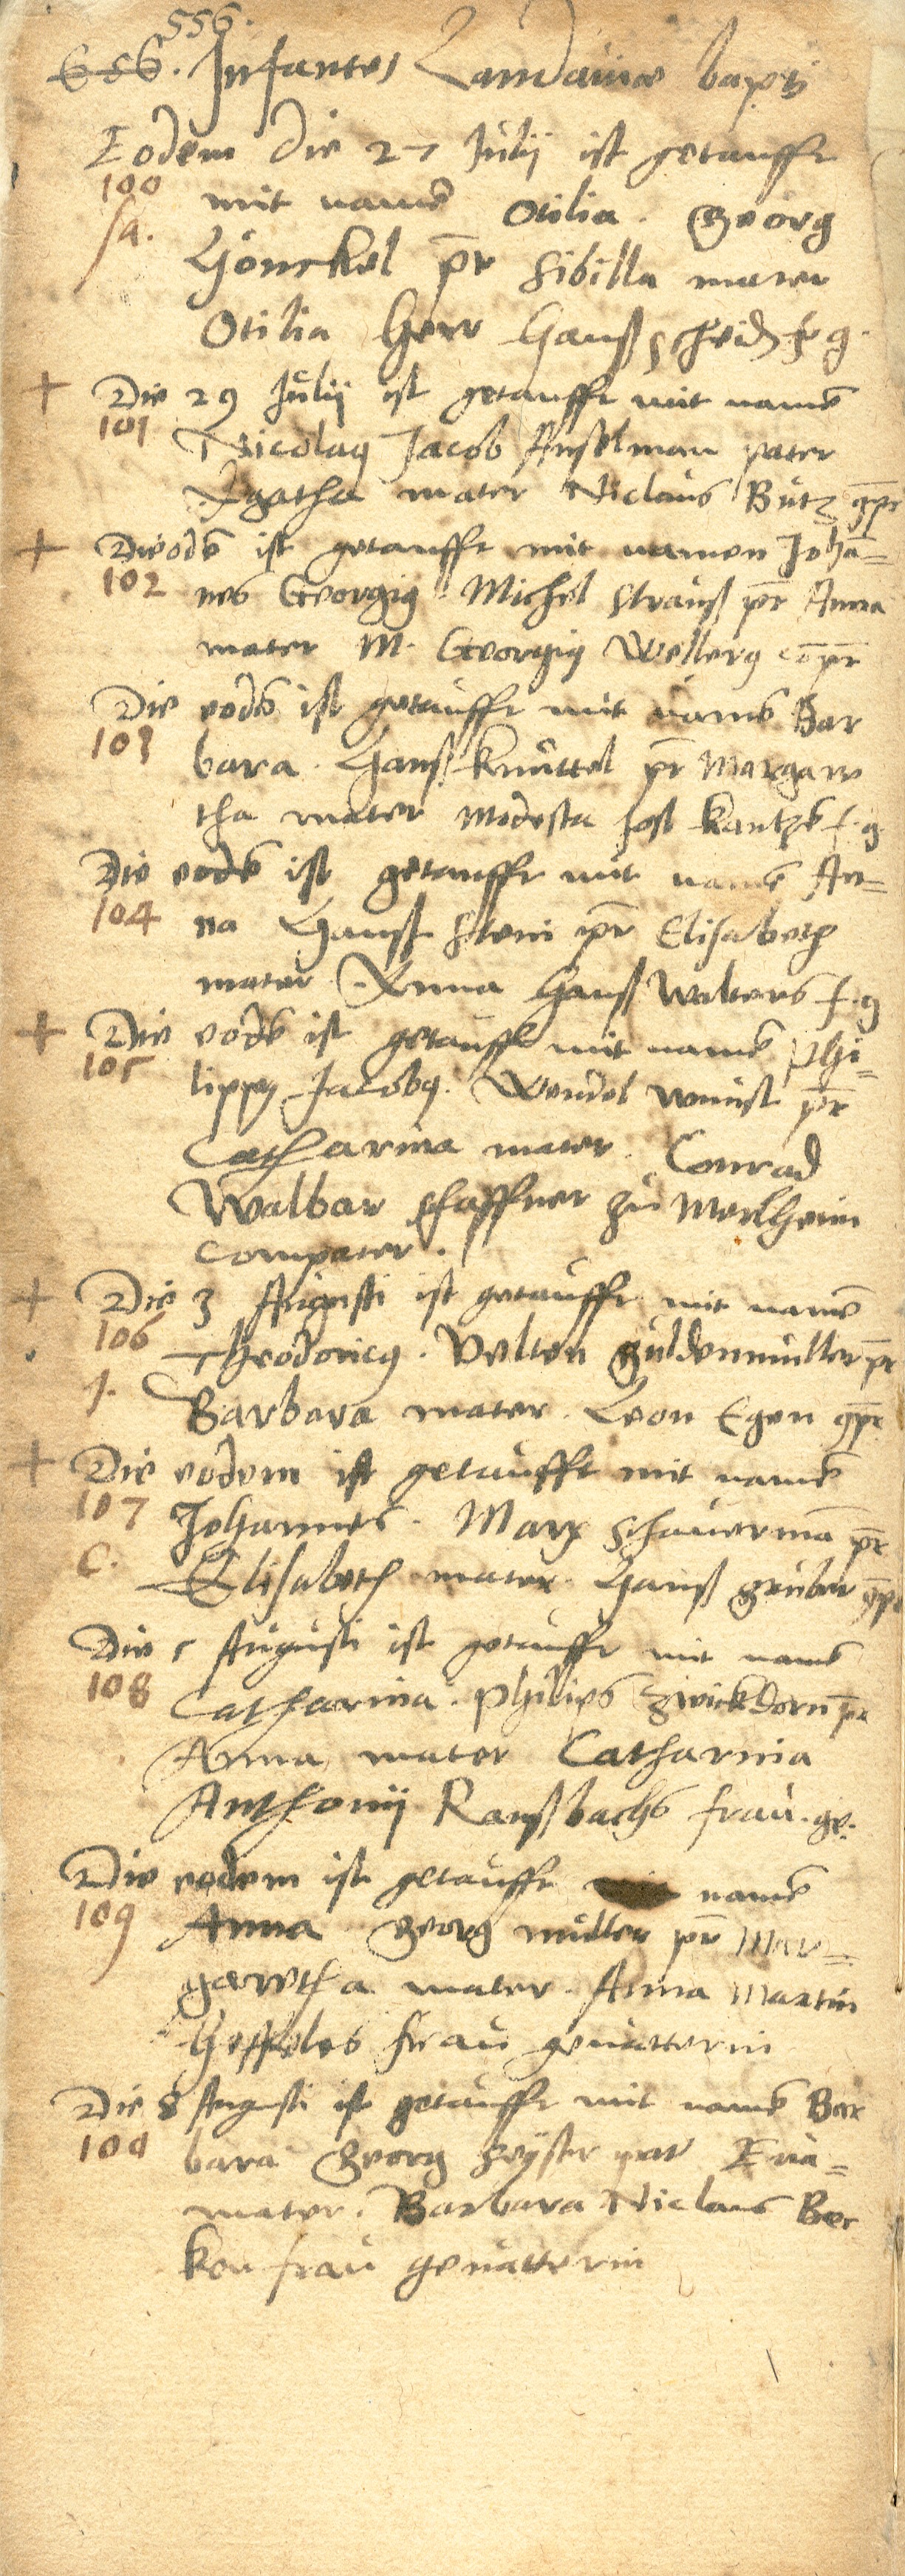 556.
656. Infantes Landauiae bapti
Eodem die 27 Julij ist getaufft
100 mit namẽ Otilia. Georg
Gönckel pr̃ Sibilla mater
Otilia Herr Hanß Scheidẽ f. g.
+ Die 29 Julij ist getaufft mit namẽ
101 Nicolaus Jacob Anselman pater
Agatha mater Niclaus Butz gpr
+ Die eodẽ ist getaufft mit namen Johã=
102 nes Georgius Michel Strauß pr̃ Anna
mater M. Georgius Wellerus cõpr̃
Die eodẽ ist getaufft mit namẽ Bar
103 bara. Hanß Knüttel pr̃ Margare
tha mater Modesta Jost Kantzẽ f. g.
Die eodẽ ist getaufft mit namẽ An=
104 na Hanß Stein pr̃ Elisabeth
mater. Anna Hanß Walters f. g
+ Die eodẽ ist getaufft mit namẽ Phi=
105 lippus Jacobus. Wendel Wünst pr̃
Catharina mater. Conrad
Walbar schaffner zu Merlheim
compater.
+ Die 3 Augusti ist getaufft mit namẽ
106 Theodoricus. Velten Güldenmüller pr̃
Barbara mater. Leon Egen gpr̃
+ Die eodem ist getaufft mit namẽ
107 Johannes. Marx Schauermã pr̃
C. Elisabeth mater. Hanß Gruber gpr
Die 5 Augusti ist getaufft mit namẽ
108 Catharina. Philips Zwickdorn pr̃
Anna mater Catharina
Anthonij Ranßbachs frau. ge.
Die eodem ist getaufft namẽ
109 Anna. Georg müller pr̃ Mar=
garetha mater. Anna Martin
Hesseles frau geuatterin
Die 8 Augusti ist getaufft mit namẽ Bar
109 bara Georg pat Eua=
mater. Barbara Niclaus Bec
ken frau geuatterin